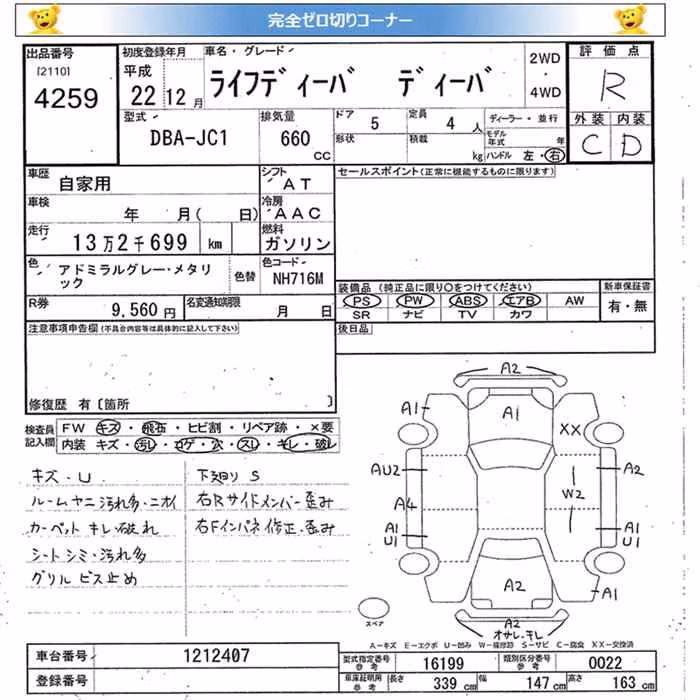 完全ゼロ切りコーナー
出品番号
[2110]
4259
初度登録年月
平成
22 12月
車名・グレード
ライフディーバ ディーバ
2WD
・
4WD
評価点
R
外装 内装
C D
型式
DBA-JC1
排気量
660
CC
ドア 5
形状
定員 4 人
積載 kg
ディーラー・並行
モデル年式 年
ハンドル 左・右
車歴
自家用
シフト
AT
車検
年 月( 日)
冷房
AAC
走行
13万2千699 km
燃料
ガソリン
色
アドミラルグレー・メタリック
色替
色コード
NH716M
R券
9,560 円
名変通知期限
月 日
セールスポイント(正常に機能するものに限ります)
装備品 (純正品に限り○をつけてください)
PS PW ABS エアB AW
SR ナビ TV カワ
新車保証書
有・無
後日品
注意事項申告欄(不具合内容等は具体的に記入して下さい)
修復歴 有〔箇所 〕
検査員記入欄
FW キズ・飛石・ヒビ割・リペア跡・×要
内装 キズ・汚レ・コゲ・穴・スレ・キレ・破レ
キズ・U
ルームヤニ汚れ多・ニオイ
カーペット キレ・破れ
シート シミ・汚れ多
グリル ビス止め
下廻り S
右Rサイドメンバー歪み
右Fインパネ修正・歪み
A2
A1
A1
XX
AU2
A2
W2
A4
A1
U1
A1
U1
A2
A1
A2
オサレ・キレ
スペア
A-キズ E-エクボ U-凹み W-補修跡 S-サビ C-腐食 XX-交換済
車台番号
1212407
登録番号
型式指定番号
参考
16199
類別区分番号
参考
0022
車庫証明用
参考
長さ 339 cm
幅 147 cm
高さ 163 cm